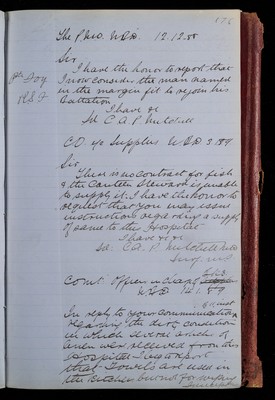 176
The P.M.O. W.Hd. 12.12.88
Sir
I have the honor to report that
I now consider the man named
in the margin fit to rejoin his
Battalion
I have &c
Sd C A P Mitchell
Pte Foy
C.O. i/c Supplies W.Hd 3.1.89
Sir
There is no contract for fish
& the Canteen Steward is unable
to supply it. I have the honor to
request that you may issue
instructions regarding a supply
of same to the Hospital
I have &c
Sd: C.A. P. Mitchell
Surg.
Officer in charge
W.Hd 14.1.89
In reply to your communication
regarding the condition
in which several articles of
linen were received from this
Hospital I report
that Towels are used in
the Kitchen but not for wiping